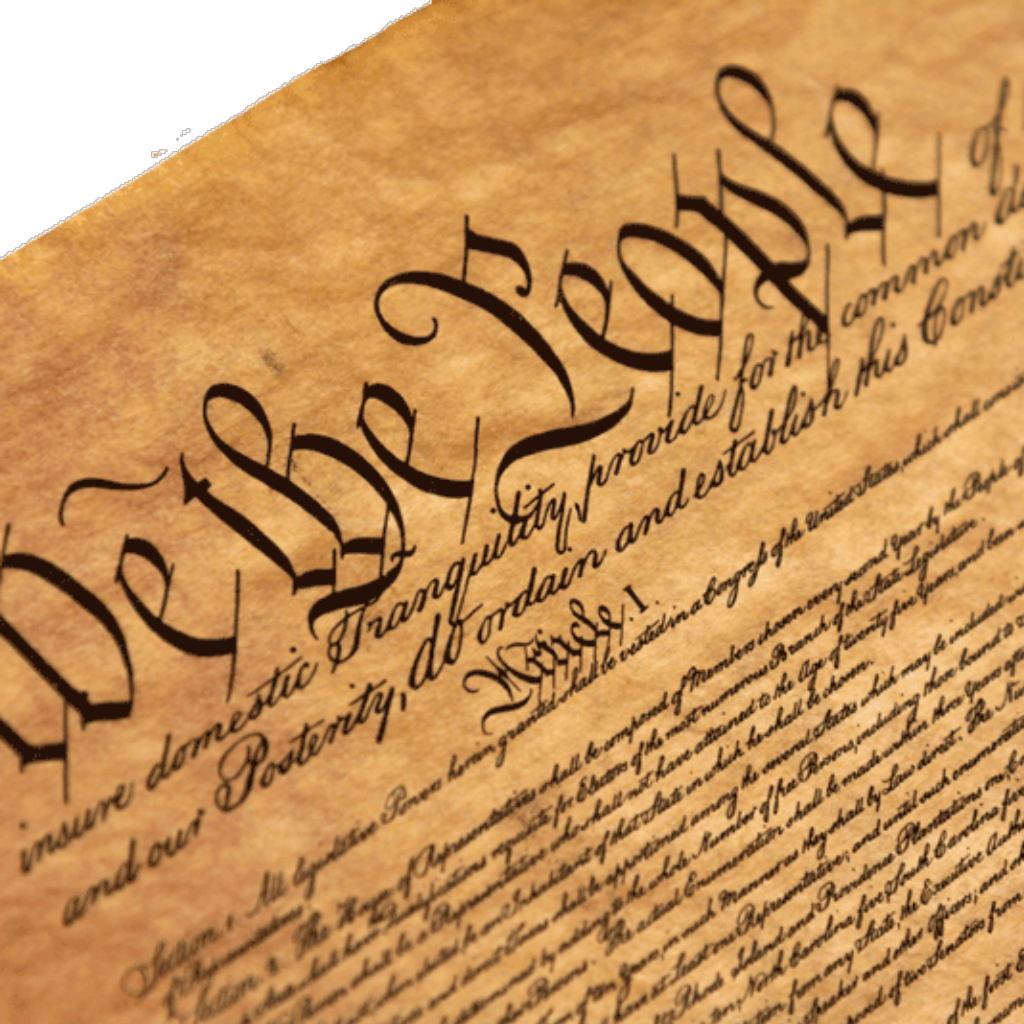 We the People of
insure domestic Tranquility, provide for the common de
and our Posterity, do ordain and establish this Constit
Article. I.
Section. 1. All legislative Powers herein granted shall be vested in a Congress of the United States, which shall consist
of Representatives.
Section. 2. The House of Representatives shall be composed of Members chosen every second Year by the People of
State shall have Qualifications requisite for Electors of the most numerous Branch of the State Legislature.
Person shall be a Representative who shall not have attained to the Age of twenty five Years, and been
not, when elected, be an Inhabitant of that State in which he shall be chosen.
and direct Taxes shall be apportioned among the several States which may be included
by adding to the whole Number of free Persons, including those bound to
Persons. The actual Enumeration shall be made within three Years after
of ten Years, in such Manner as they shall by Law direct. The Nu
have at Least one Representative; and until such enumeration
Rhode Island and Providence Plantations one,
North Carolina five, South Carolina five
from any State, the Executive Autho
Speaker and other Officers; and
of two Senators from
of the first